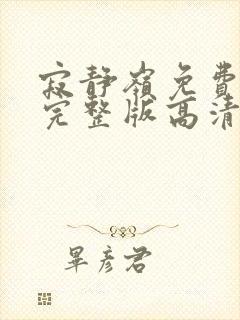 寂静嶺免費
完整版高清
畢彥君